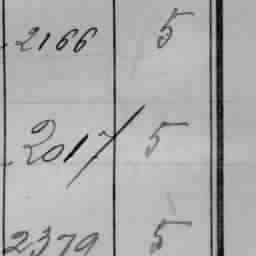 2166 5
2017 5
2379 5